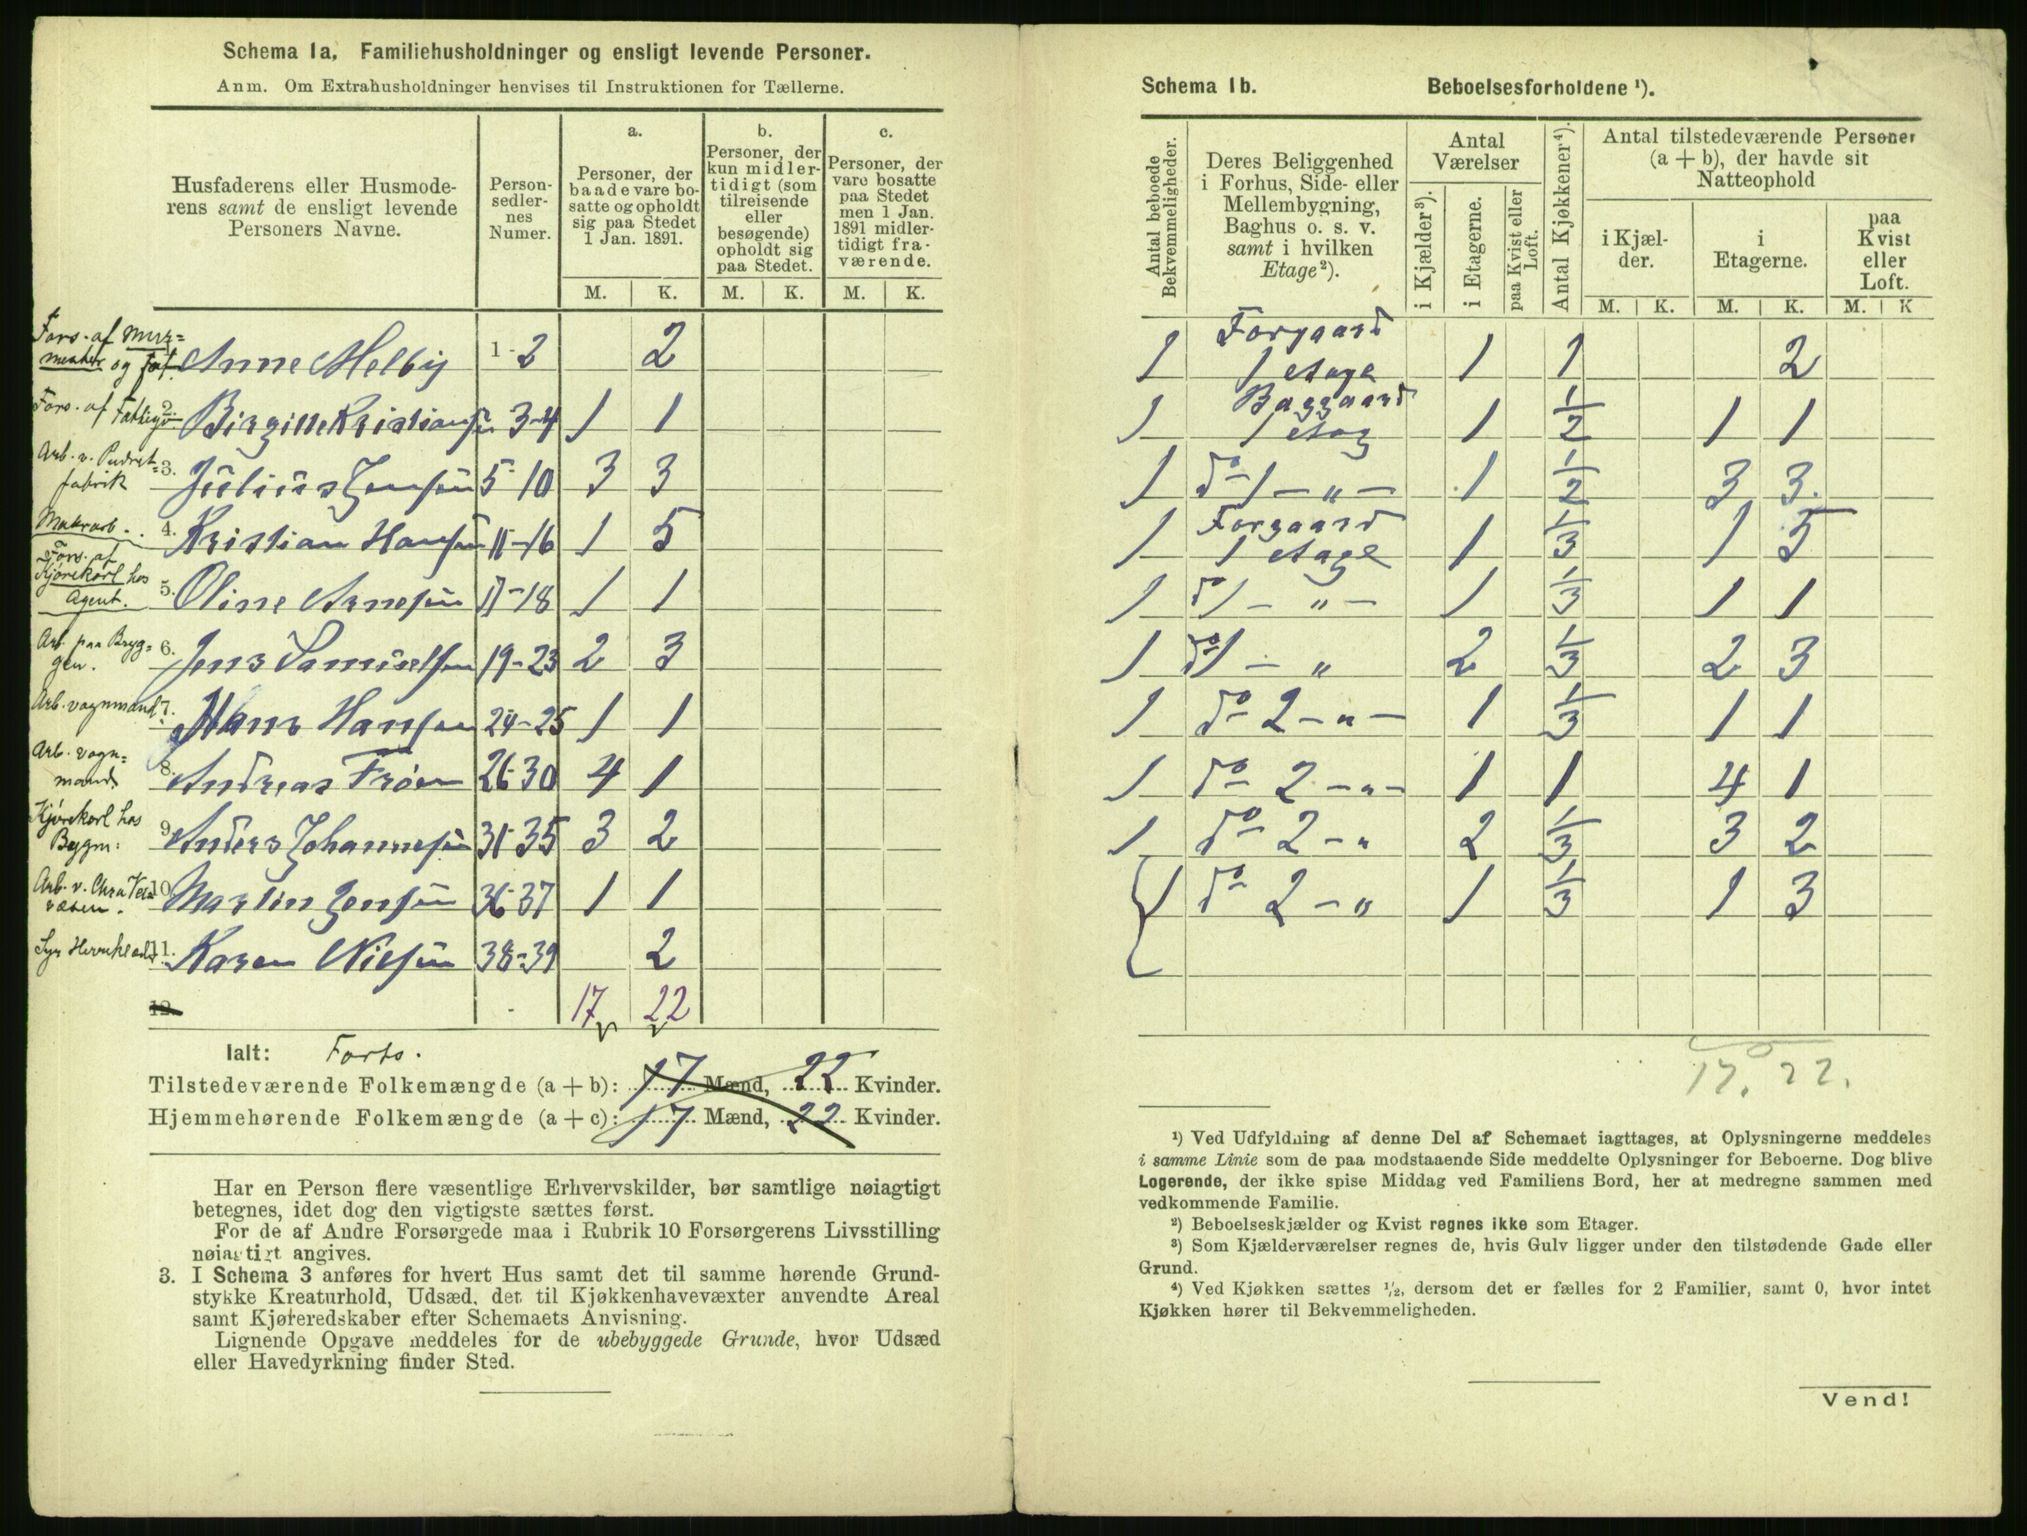 Schema 1a. Familiehusholdninger og ensligt levende Personer.
Anm. Om Extrahusholdninger henvises til Instruktionen for Tællerne.
Husfaderens eller Husmode-
rens samt de ensligt levende
Personers Navne.
Person-
sedler-
nes
Numer.
a.
Personer, der
baade vare bo-
satte og opholdt
sig paa Stedet
1 Jan. 1891.
b.
Personer, der
kun midler-
tidigt (som
tilreisende
eller
besøgende)
opholdt sig
paa Stedet.
c.
Personer, der
vare bosatte
paa Stedet
men 1 Jan.
1891 midler-
tidigt fra-
værende.
M. K. M. K. M. K.
Fors. af Mur-
mester og fat. Anne Melby 1-2 2
Fors. af Fattigv 2. Birgitte Kristiansen 3-4 1 1
Arb. v. Pudret-
fabrik 3. Julius Jensen 5-10 3 3
4. Kristian Hansen 11-16 1 5
Fors. af
Kjørekarl hos
Agent. 5. Oline Arnesen 17-18 1 1
Arb. paa Bryg-
gen. 6. Jens Samuelsen 19-23 2 3
Arb. vognmand 7. Hans Hansen 24-25 1 1
Arb. vogn-
mand 8. Andreas Frøen 26-30 4 1
Kjørekarl hos
Bygm: 9. Anders Johannesen 31-35 3 2
Arb. v. Chra Vei-
væsen. 10. Martin Jensen 36-37 1 1
11. Karen Nielsen 38-39 2
12. 17 22
Ialt: Forts.
Tilstedeværende Folkemængde (a + b): 17 Mænd, 22 Kvinder.
Hjemmehørende Folkemængde (a + c): 17 Mænd, 22 Kvinder.
Har en Person flere væsentlige Erhvervskilder, bør samtlige nøiagtigt
betegnes, idet dog den vigtigste sættes først.
For de af Andre Forsørgede maa i Rubrik 10 Forsørgerens Livsstilling
nøiagtigt angives.
3. I Schema 3 anføres for hvert Hus samt det til samme hørende Grund-
stykke Kreaturhold, Udsæd, det til Kjøkkenhavevæxter anvendte Areal
samt Kjøreredskaber efter Schemaets Anvisning.
Lignende Opgave meddeles for de ubebyggede Grunde, hvor Udsæd
eller Havedyrkning finder Sted.
Schema 1b. Beboelsesforholdene ¹).
Antal beboede
Bekvemmeligheder.
Deres Beliggenhed
i Forhus, Side- eller
Mellembygning,
Baghus o. s. v.
samt i hvilken
Etage²).
Antal
Værelser
i Kjælder³).
i Etagerne.
paa Kvist eller
Loft.
Antal Kjøkkener⁴).
Antal tilstedeværende Personer
(a + b), der havde sit
Natteophold
i Kjæl-
der.
i
Etagerne.
paa
Kvist
eller
Loft.
M. K. M. K. M. K
1 Forgaard
1 etage 1 1 2
1 Baggaard
1 etag 1 1/2 1 1
1 do 1 - " - 1 1/2 3 3
1 Forgaard
1 etage 1 1/3 1 5
1 do 1 - " - 1 1/3 1 1
1 do 1 - " 2 1/3 2 3
1 do 2 - " - 1 1/3 1 1
1 do 2 - " - 1 1 4 1
1 do 2 - " 2 1/3 3 2
1 do 2 - " 1 1/3 1 3
17. 22.
¹) Ved Udfyldning af denne Del af Schemaet iagttages, at Oplysningerne meddeles
i samme Linie som de paa modstaaende Side meddelte Oplysninger for Beboerne. Dog blive
Logerende, der ikke spise Middag ved Familiens Bord, her at medregne sammen med
vedkommende Familie.
²) Beboelseskjælder og Kvist regnes ikke som Etager.
³) Som Kjælderværelser regnes de, hvis Gulv ligger under den tilstødende Gade eller
Grund.
⁴) Ved Kjøkken sættes ¹/₂, dersom det er fælles for 2 Familier, samt 0, hvor intet
Kjøkken hører til Bekvemmeligheden.
Vend!